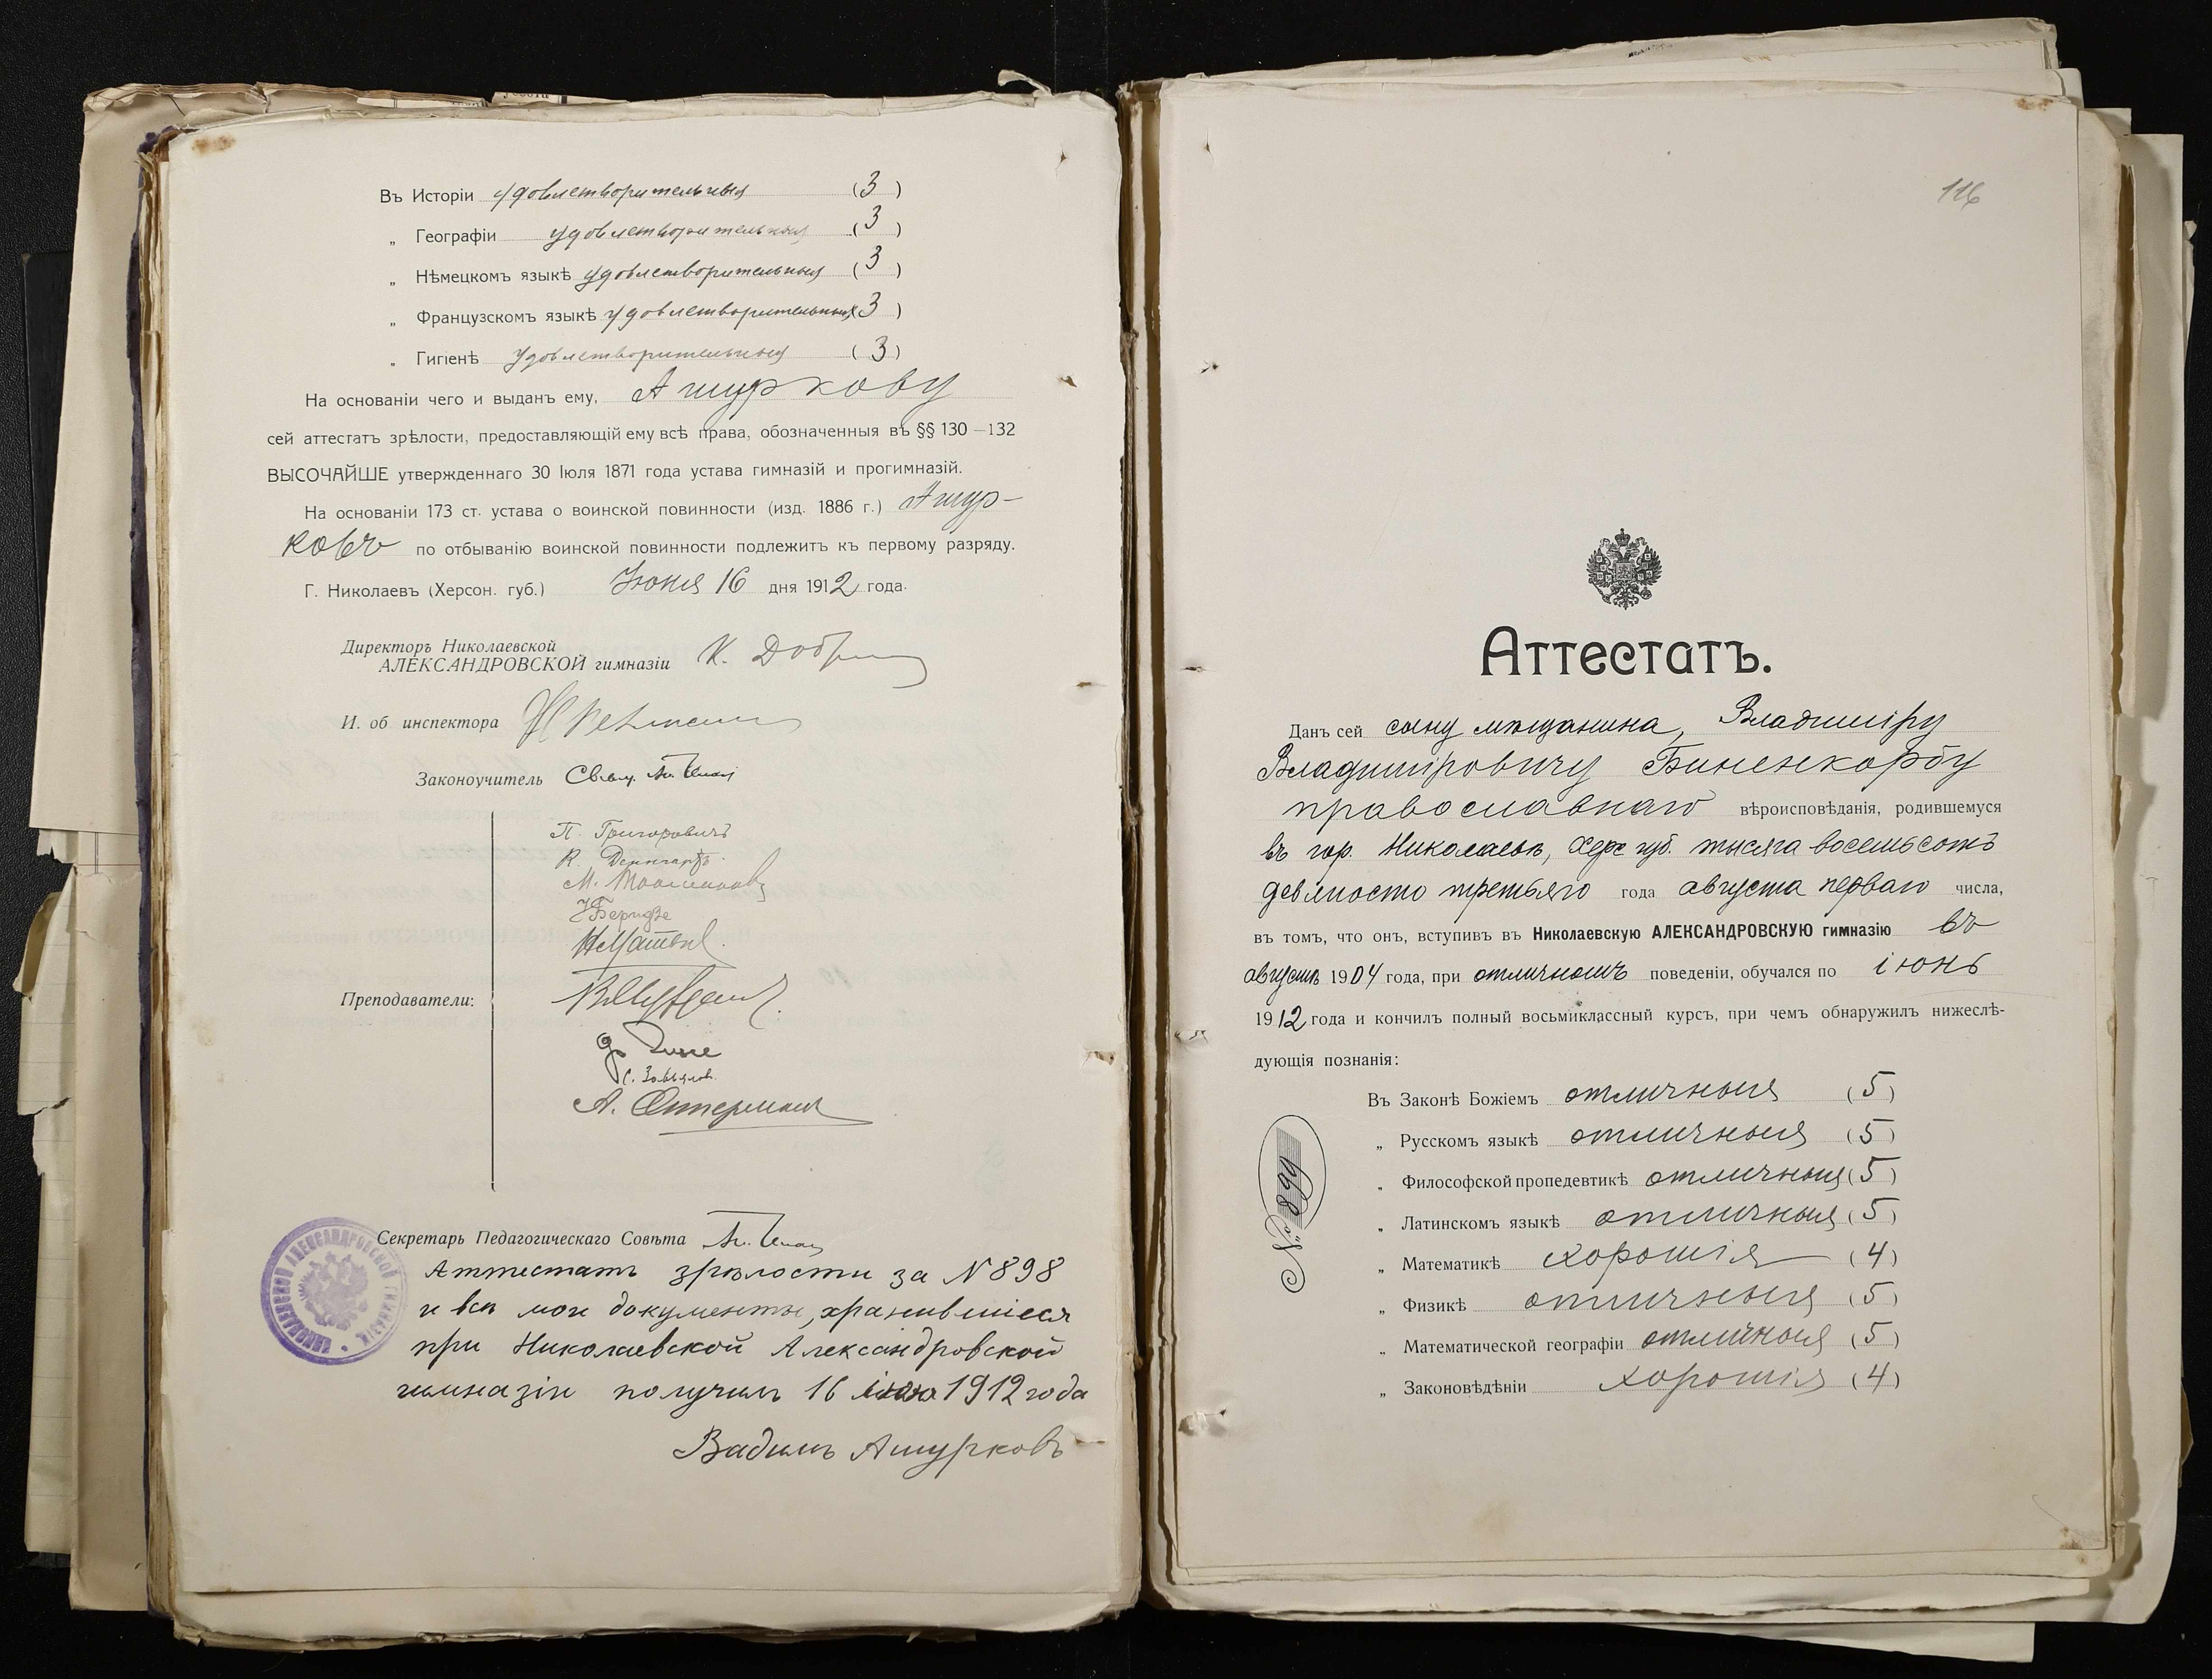 Въ Исторіи удовлетворительныя (3)
„ Географіи удовлетворительныя (3)
„ Нѣмецкомъ языкѣ удовлетворительныя (3)
„ Французскомъ языкѣ удовлетворительныя (3)
„ Гигіенѣ удовлетворительныя (3)
На основаніи чего и выданъ ему, Ашуркову
сей аттестатъ зрѣлости, предоставляющій ему всѣ права, обозначенныя въ §§ 130—132
ВЫСОЧАЙШЕ утвержденнаго 30 Іюля 1871 года устава гимназій и прогимназій.
На основаніи 173 ст. устава о воинской повинности (изд. 1886 г.) Ашур-
ковъ по отбыванію воинской повинности подлежитъ къ первому разряду.
Г. Николаевъ (Херсон. губ.) Іюня 16 дня 1912 года.
Директоръ Николаевской
АЛЕКСАНДРОВСКОЙ гимназіи К.
И. об инспектора
Законоучитель Свящ.
П. Григоровичъ
К.
М.
Н. Беридзе
Преподаватели:
С. Завьялов.
А. Оттерман
Секретарь Педагогическаго Совѣта
НИКОЛАЕВСКОЙ АЛЕКСАНДРОВСКОЙ ГИМНАЗІИ
Аттестатъ зрѣлости за N 898
и всѣ мои документы, хранившіеся
при Николаевской Александровской
гимназіи получилъ 16 іюня 1912 года
Вадимъ Ашурковъ
116
Аттестатъ.
Данъ сей сыну мѣщанина, Владиміру
Владиміровичу Биненкорбу
православнаго вѣроисповѣданія, родившемуся
въ гор. Николаевѣ, Херс губ. тысяча восемьсотъ
девяносто третьяго года августа перваго числа,
въ томъ, что онъ, вступив въ Николаевскую АЛЕКСАНДРОВСКУЮ гимназію въ
августѣ 1904 года, при отличномъ поведеніи, обучался по іюнь
1912 года и кончилъ полный восьмиклассный курсъ, при чемъ обнаружилъ нижеслѣ-
дующія познанія:
Въ Законѣ Божіемъ отличныя (5)
„ Русскомъ языкѣ отличныя (5)
„ Философской пропедевтикѣ отличныя (5)
„ Латинскомъ языкѣ отличныя (5)
„ Математикѣ хорошія (4)
„ Физикѣ отличныя (5)
„ Математической географіи отличныя (5)
„ Законовѣдѣніи хорошія (4)
№ 899